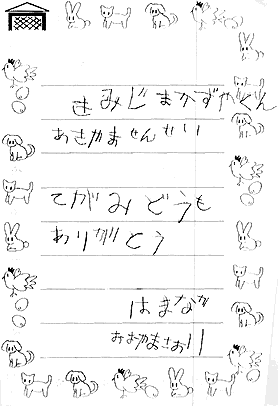 きみじまかずやくん
あさかませんせい
てがみどうも
ありがとう
はまなか
おおかまさおり